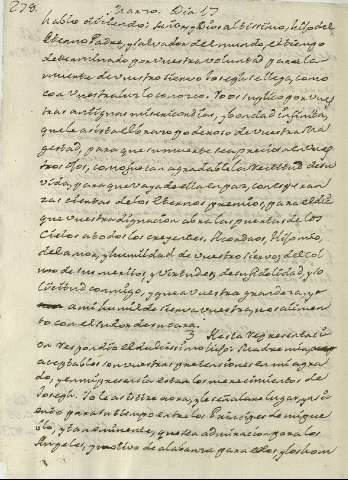 278. Marzo. Dia 17
hablo diciendo: Señor, y Dios altissimo, Hijo del
Eterno Padre, y Salvador del mundo, el tiempo
determinado por vuestra voluntad para la
muerte de vuestro siervo Joseph se llega, como
con vuestra luz lo conozco. Yo os suplico por vues
tras antiguas misericordias, y bondad infinita,
que le asista el brazo poderoso de vuestra Ma
gestad, para que su muerte sea preciosa en vues
tros ojos, como fue tan agradable la rectitud de su
vida, para que vaya de ella en paz, con esperan
zas ciertas de los eternos premios, para el dia
que vuestra dignacion abra las puertas de los
Cielos a todos los creyentes. Acordaos, Hijo mio,
del amor, y humildad de vuestro siervo, del col
mo de sus meritos, y virtudes, de su fidelidad, y so
licitud conmigo, y que a vuestra grandeza, y
a mi humilde sierva vuestra, nos alimen
to con el sudor de su cara.
3 A esta representaci
on respondio el dulcissimo Hijo: Madre mia,
aceptables son vuestras peticiones en mi agra
do, y en mi presencia estan los merecimientos de
Joseph. Yo le asistire aora, y le señalare lugar, y asi
ento para su tiempo entre los Principes de mi pue
blo, y tan eminente, que sea admiracion para los
Angeles, y motivo de alabanza para ellos, y los hom